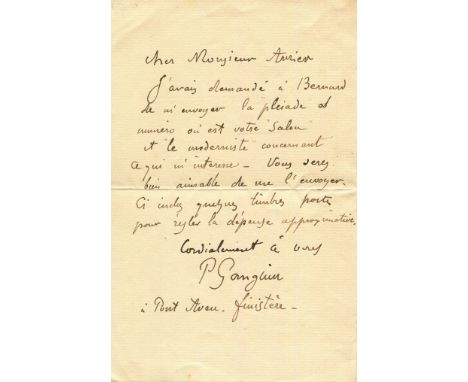 Cher Monsieur Aurier
J'avais demandé à Bernard
de m'envoyer la pléiade et
numéro où est votre Salon
et le moderniste concernant
ce qui m'interesse - Vous seres
bien aimable de me l'envoyer.
Ci inclus quelques timbres poste
pour régler la dépense approximative.
Cordialement à vous
P Gauguin
à Pont Aven. finistère -